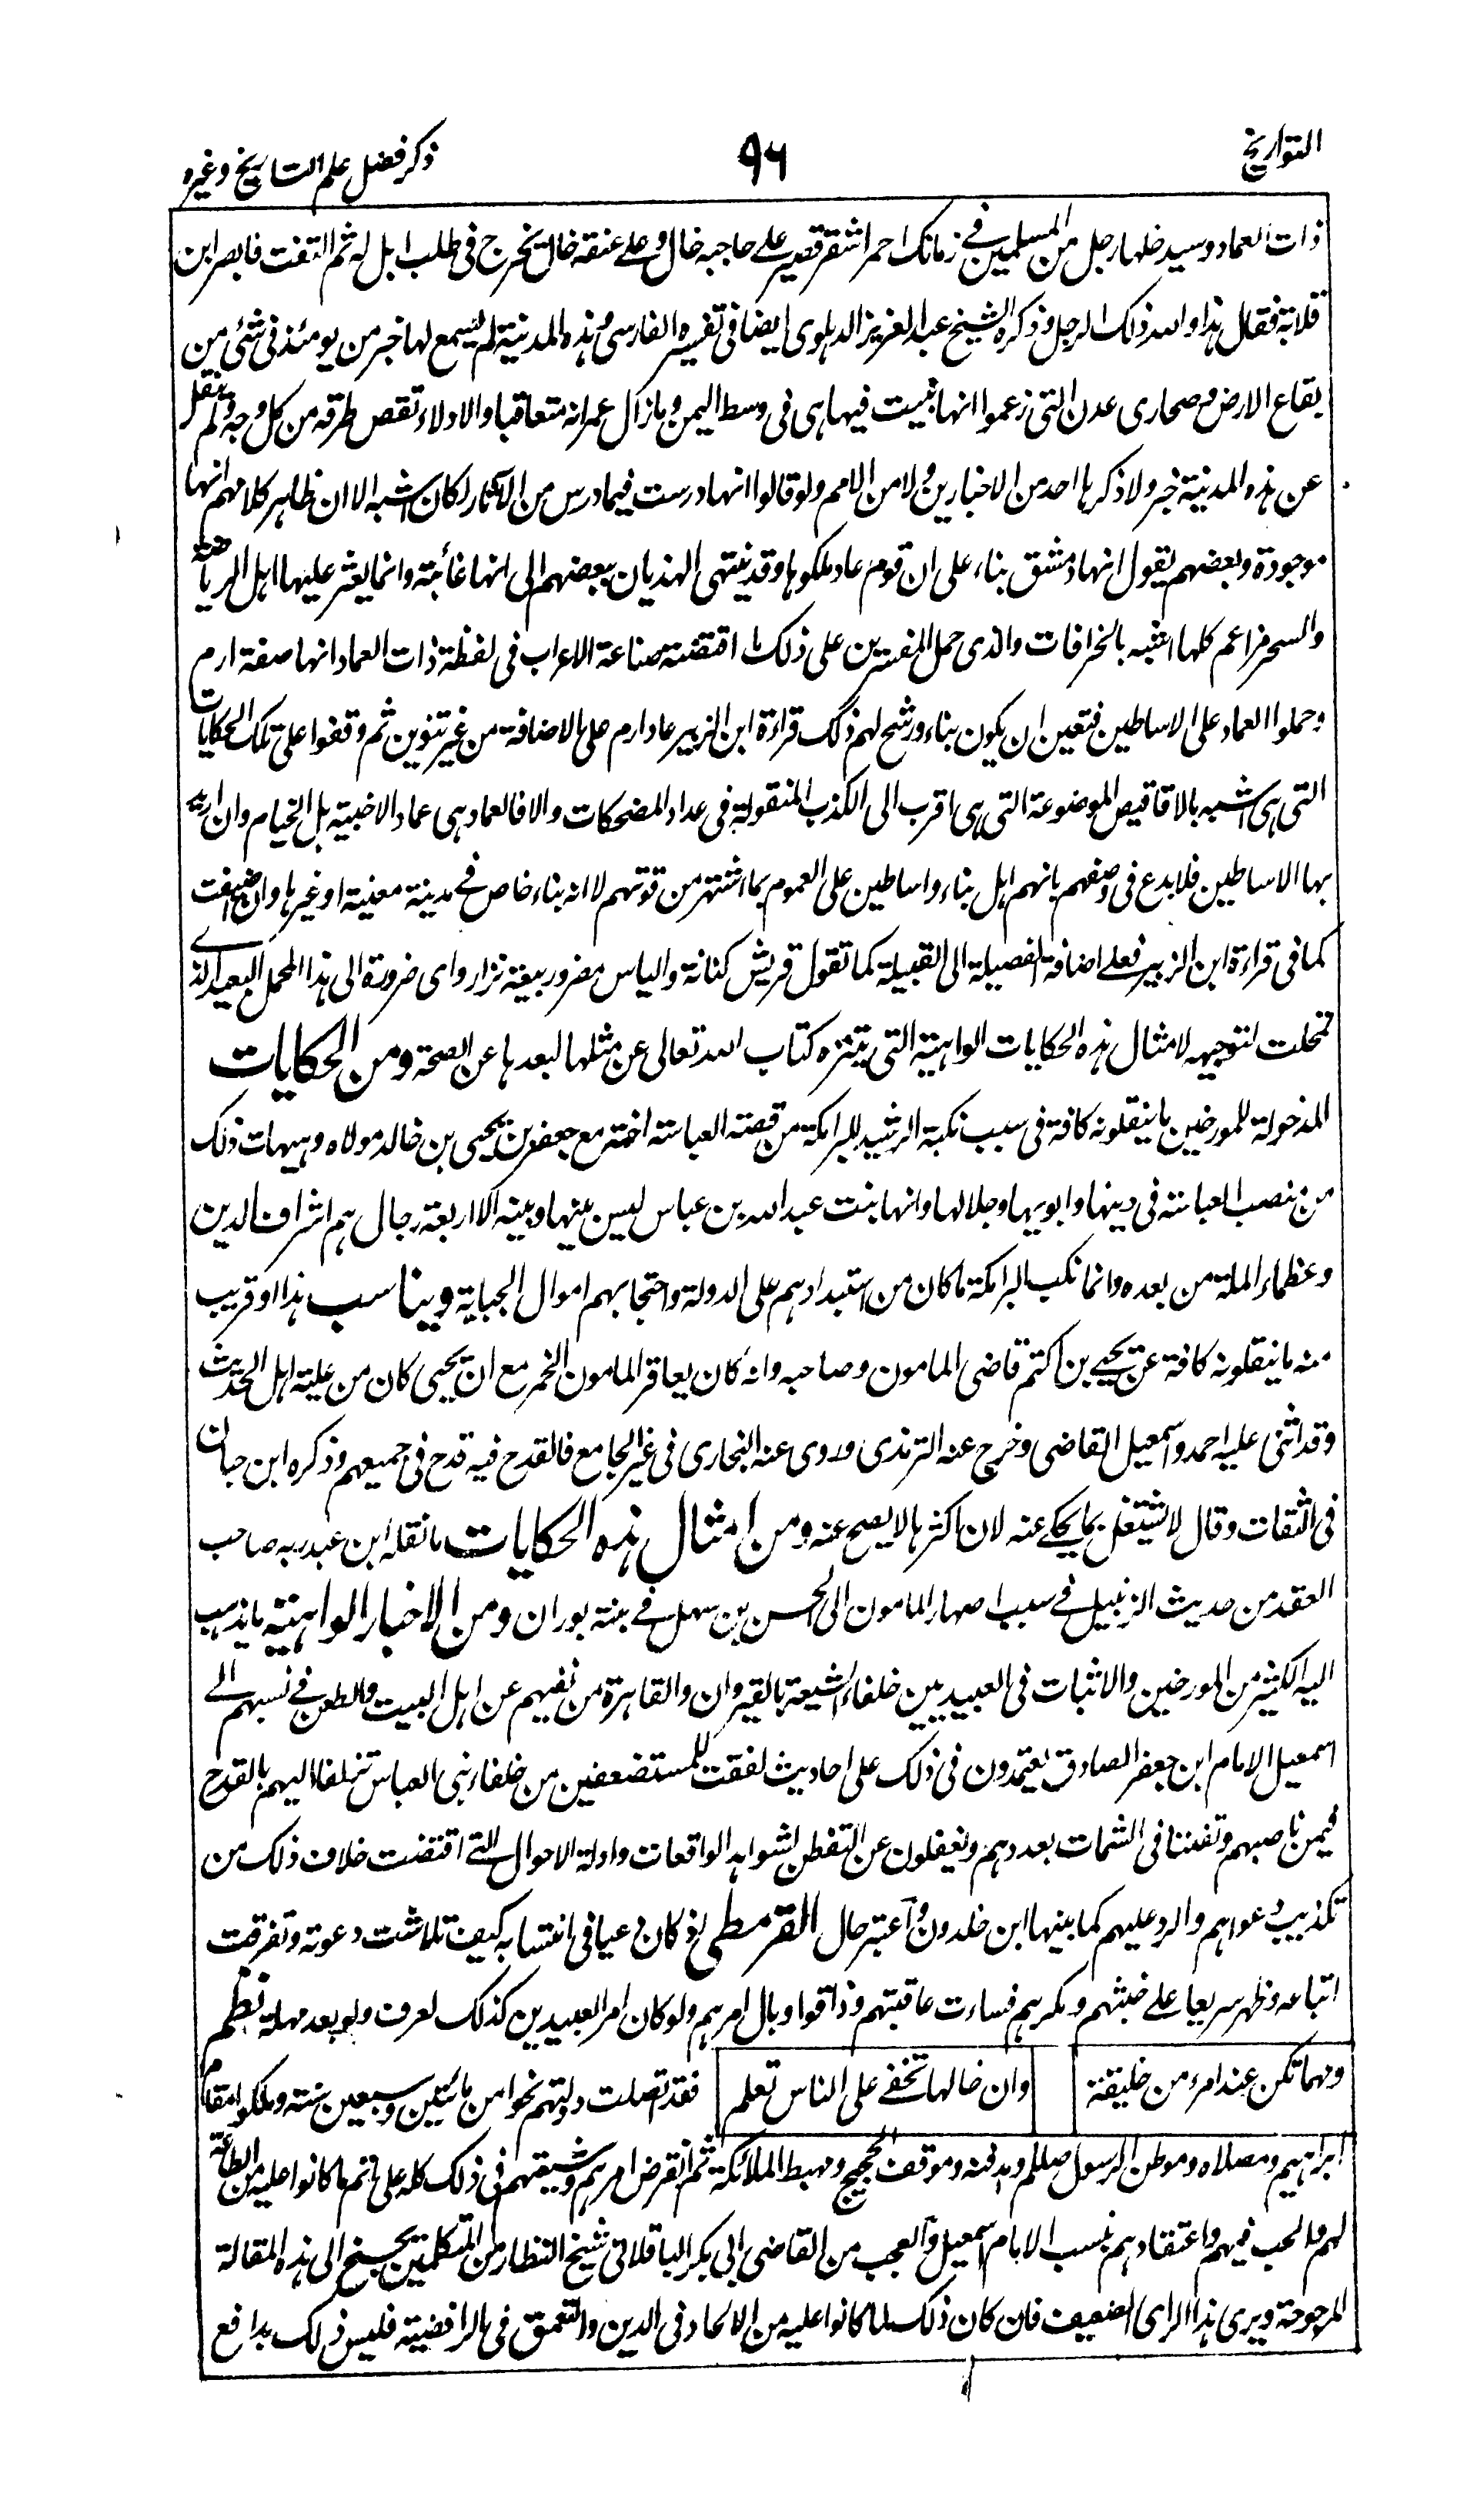 التواريخ
٩٦
ذكر فضل علم التاريخ وغيره
ذات العماد وسيدخلها رجل من المسلمين في زمانك احمر اشقر قصير على حاجبه خال وعلى عنقه خال يخرج في طلب ابل له ثم التفت فابصر ابن
قلابة فقال هذا والله ذلك الرجل وذكره الشيخ عبد العزيز الدهلوي ايضا في تفسيره الفارسي وهذه المدينة لم يسمع لها خبر من يومئذ في شئ من
بقاع الارض وصحارى عدن التي زعموا انها بنيت فيها هي في وسط اليمن وما زال عمرانه متعاقبا والادلاء تقص طرقه من كل وجه ولم ينقل
عن هذه المدينة خبر ولا ذكرها احد من الاخباريين ولا من الامم ولو قالوا انها درست فيما درس من الآثار لكان اشبه الا ان ظاهر كلامهم انها
موجودة وبعضهم يقول انها دمشق بناء على ان قوم عاد ملكوها وقد ينتهي الهذيان ببعضهم الى انها غائبة وانما يعثر عليها اهل الرياضة
والسحر مزاعم كلها اشبه بالخرافات والذي حمل المفسرين على ذلك ما اقتضته صناعة الاعراب في لفظة ذات العماد انها صفة ارم
وحملوا العماد على الاساطين فتعين ان يكون بناء ورشح لهم ذلك قراءة ابن الزبير عاد ارم على الاضافة من غير تنوين ثم وقفوا على تلك الحكايات
التي هي اشبه بالاقاقيص الموضوعة التي هي اقرب الى الكذب المنقولة في عداد المضحكات والا فالعماد هي عماد الاخبية بل الخيام وان اريد
بها الاساطين فلا بدع في وصفهم بانهم اهل بناء واساطين على العموم بما اشتهر من قوتهم لا انه بناء خاص في مدينة معينة او غيرها وان اضيفت
كما في قراءة ابن الزبير فعلى اضافة الفصيلة الى القبيلة كما تقول قريش كنانة والياس مضر وربيعة نزار واى ضرورة الى هذا المحمل البعيد الذي
تمحلت لتوجيهه لامثال هذه الحكايات الواهية التي يتنزه كتاب الله تعالى عن مثلها لبعدها عن الصحة ومن الحكايات
المدخولة للمورخين ما ينقلونه كافة في سبب نكبة الرشيد للبرامكة من قصة العباسة اخته مع جعفر بن يحيى بن خالد مولاه وهيهات ذلك
من منصب العباسة في دينها وابويها وجلالها وانها بنت عبد الله بن عباس ليس بينها وبينه الا اربعة رجال هم اشراف الدين
وعظماء الملة من بعده وانما نكب البرامكة ما كان من استبدادهم على الدولة واحتجابهم اموال الجباية ويناسب هذا او قريب
منه ما ينقلونه كافة عن يحيى بن اكتم قاضي المامون وصاحبه وانه كان يعاقر المامون الخمر مع ان يحيى كان من علية اهل الحديث
وقد اثنى عليه احمد واسمعيل القاضي وخرج عنه الترمذي وروى عنه البخاري في غير الجامع فالقدح فيه قدح في جميعهم وذكره ابن حبان
في الثقات وقال لا يشتغل بما يحكى عنه لان اكثرها لا يصح عنه ومن امثال هذه الحكايات ما نقله ابن عبد ربه صاحب
العقد من حديث الزنبيل في سبب اصهار المامون الى الحسن بن سهل في بنته بوران ومن الاخبار الواهية ما يذهب
اليه الكثير من المورخين والاثبات في العبيديين خلفاء الشيعة بالقيروان والقاهرة من نفيهم عن اهل البيت والطعن في نسبهم الى
اسمعيل الامام ابن جعفر الصادق يعتمدون في ذلك على احاديث لفقت للمستضعفين من خلفاء بني العباس تزلفا اليهم بالقدح
فيمن ناصبهم وتفننا في الشمات بعدوهم ويغفلون عن التفطن لشواهد الواقعات وادلة الاحوال التي اقتضت خلاف ذلك من
تكذيب دعواهم والرد عليهم كما بينها ابن خلدون واعتبر حال القرمطي اذ كان دعيا في انتسابه كيف تلاشت دعوته وتفرقت
اتباعه وظهر سريعا على خبثهم ومكرهم فساءت عاقبتهم وذاقوا وبال امرهم ولو كان امر العبيديين كذلك لعرف ولو بعد مهلة نظم
ومهما تكن عند امرء من خليقة وان خالها تخفى على الناس تعلم فقد اتصلت دولتهم نحوا من مائتين وسبعين سنة وملكوا مقام
ابراهيم ومصلاه وموطن الرسول صللم ومدفنه وموقف الحجيج ومهبط الملائكة ثم انقرض امرهم وشيعتهم في ذلك كله على اتم ما كانوا عليه من الطاعة
لهم والحب فيهم واعتقادهم بنسب الامام اسمعيل والعجب من القاضي ابي بكر الباقلاني شيخ النظار من المتكلمين يجنح الى هذه المقالة
المرجوحة ويرى هذا الراى الضعيف فان كان ذلك لما كانوا عليه من الالحاد في الدين والتعمق في الرافضية فليس ذلك بدافع